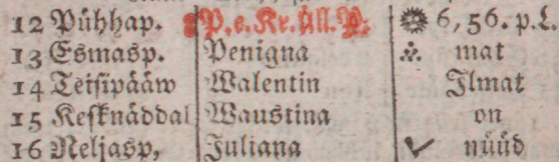 12 Pühhap. P. e. Kr. üll. P. 6, 56. p. L.
13 Esmasp. Penigna mat
14 Teisipääw Walentin Ilmat
15 Kesknäddal Waustina on
16 Neljasp, Juliana nüüd